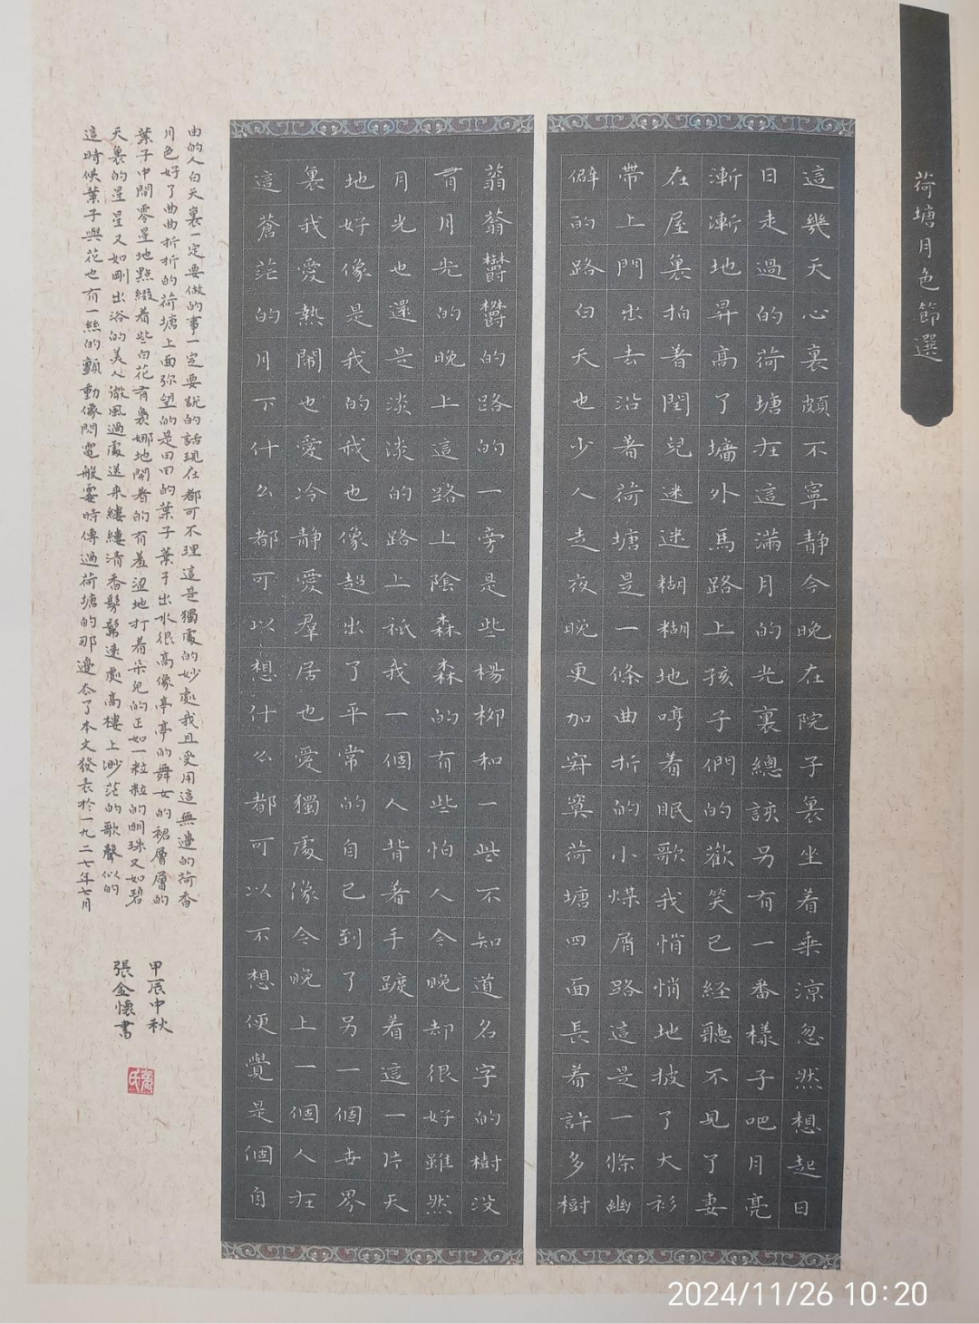 荷塘月色節選
這幾天心裏頗不寧靜今晚在院子裏坐着乘涼忽然想起日
日走過的荷塘在這滿月的光裏總該另有一番樣子吧月亮
漸漸地昇高了墻外馬路上孩子們的歡笑已經聽不見了妻
在屋裏拍着閏兒迷迷糊糊地哼着眠歌我悄悄地披了大衫
帶上門出去沿着荷塘是一條曲折的小煤屑路這是一條幽
僻的路白天也少人走夜晚更加寂寞荷塘四面長着許多樹
蓊蓊鬱鬱的路的一旁是些楊柳和一些不知道名字的樹没
有月光的晚上這路上陰森森的有些怕人今晚却很好雖然
月光也還是淡淡的路上祇我一個人背着手踱着這一片天
地好像是我的我也像超出了平常的自己到了另一個世界
裏我愛熱鬧也愛冷靜愛羣居也愛獨處像今晚上一個人在
這蒼茫的月下什么都可以想什么都可以不想便覺是個自
由的人白天裏一定要做的事一定要說的話現在都可不理這是獨處的妙處我且受用這無邊的荷香
月色好了曲曲折折的荷塘上面弥望的是田田的葉子葉子出水很高像亭亭的舞女的裙層層的
葉子中間零星地點綴着些白花有裊娜地開着的有羞澀地打着朵兒的正如一粒粒的明珠又如碧
天裏的星星又如剛出浴的美人微風過處送来縷縷清香髣髴遠處高樓上渺茫的歌聲似的
這時候葉子與花也有一絲的顫動像閃電般霎時傳過荷塘的那邊去了本文發表於一九二七年七月
甲辰中秋
張金懷書
2024/11/26 10:20